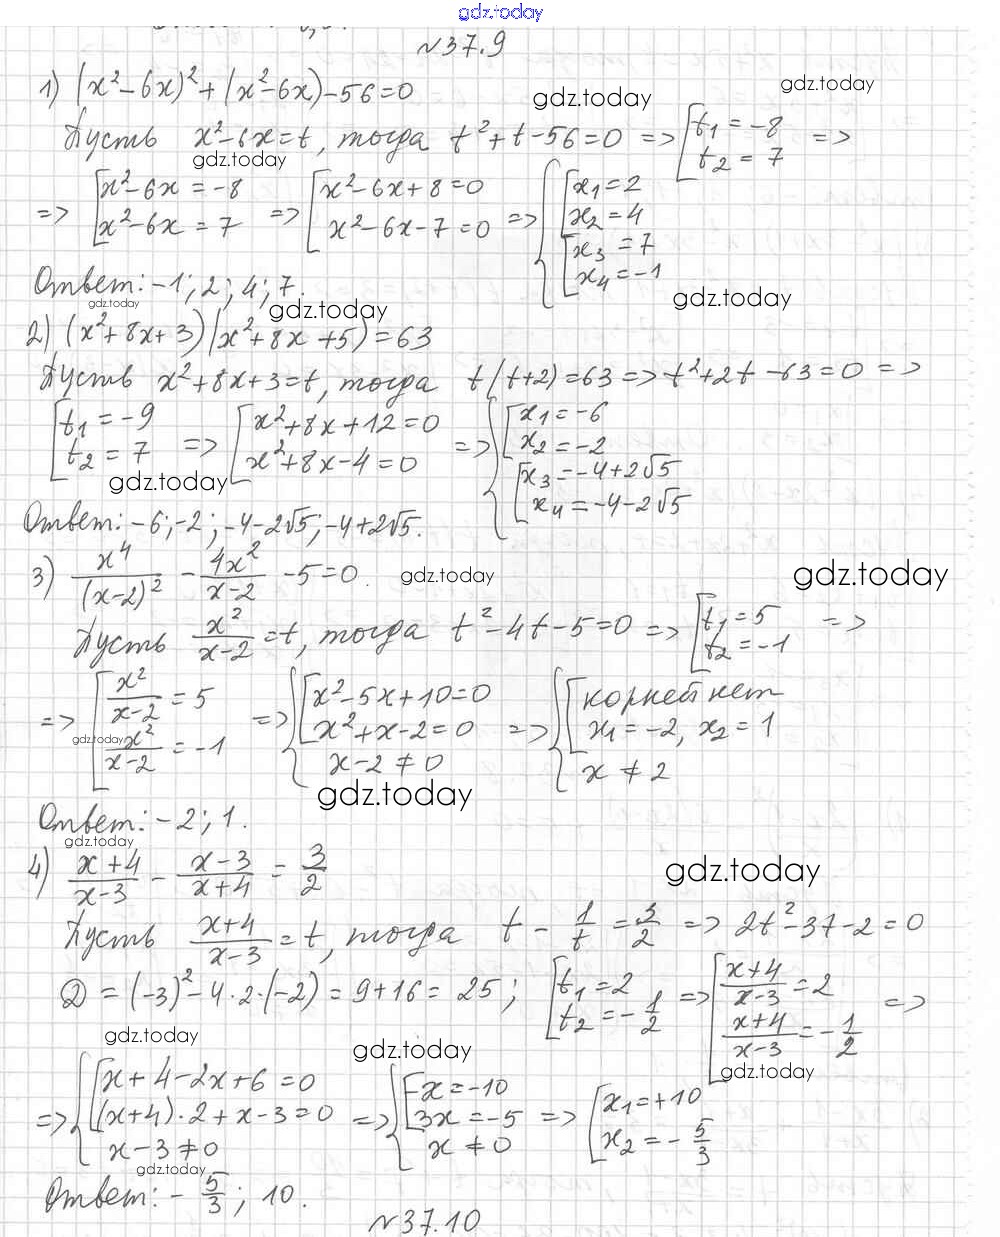 gdz.today
№37.9
1) (x²-6x)²+(x²-6x)-56=0
gdz.today
gdz.today
Пусть x²-6x=t, тогда t²+t-56=0 => [t₁=-8 t₂=7 =>
gdz.today
=> [x²-6x=-8 x²-6x=7 => [x²-6x+8=0 x²-6x-7=0 => {[x₁=2 x₂=4 [x₃=7 x₄=-1
Ответ: -1; 2; 4; 7.
gdz.today
gdz.today
gdz.today
2) (x²+8x+3)(x²+8x+5)=63
Пусть x²+8x+3=t, тогда t(t+2)=63 => t²+2t-63=0 =>
[t₁=-9 t₂=7 => [x²+8x+12=0 x²+8x-4=0 => {[x₁=-6 x₂=-2 [x₃=-4+2√5 x₄=-4-2√5
gdz.today
Ответ: -6; -2; -4-2√5; -4+2√5.
3) x⁴/(x-2)² - 4x²/x-2 -5=0.
gdz.today
gdz.today
Пусть x²/x-2=t, тогда t²-4t-5=0 => [t₁=5 t₂=-1 =>
=> [x²/x-2=5 x²/x-2=-1 => {[x²-5x+10=0 x²+x-2=0 x-2≠0 => {[корней нет x₁=-2, x₂=1 x≠2
gdz.today
gdz.today
Ответ: -2; 1.
gdz.today
4) x+4/x-3 - x-3/x+4 = 3/2
gdz.today
Пусть x+4/x-3=t, тогда t - 1/t = 3/2 => 2t²-3t-2=0
D=(-3)²-4·2·(-2)=9+16=25; [t₁=2 t₂=-1/2 => [x+4/x-3=2 x+4/x-3=-1/2 =>
gdz.today
gdz.today
gdz.today
=> {[x+4-2x+6=0 (x+4)·2+x-3=0 x-3≠0 => {[-x=-10 3x=-5 x≠0 => [x₁=+10 x₂=-5/3
gdz.today
Ответ: -5/3; 10.
№37.10